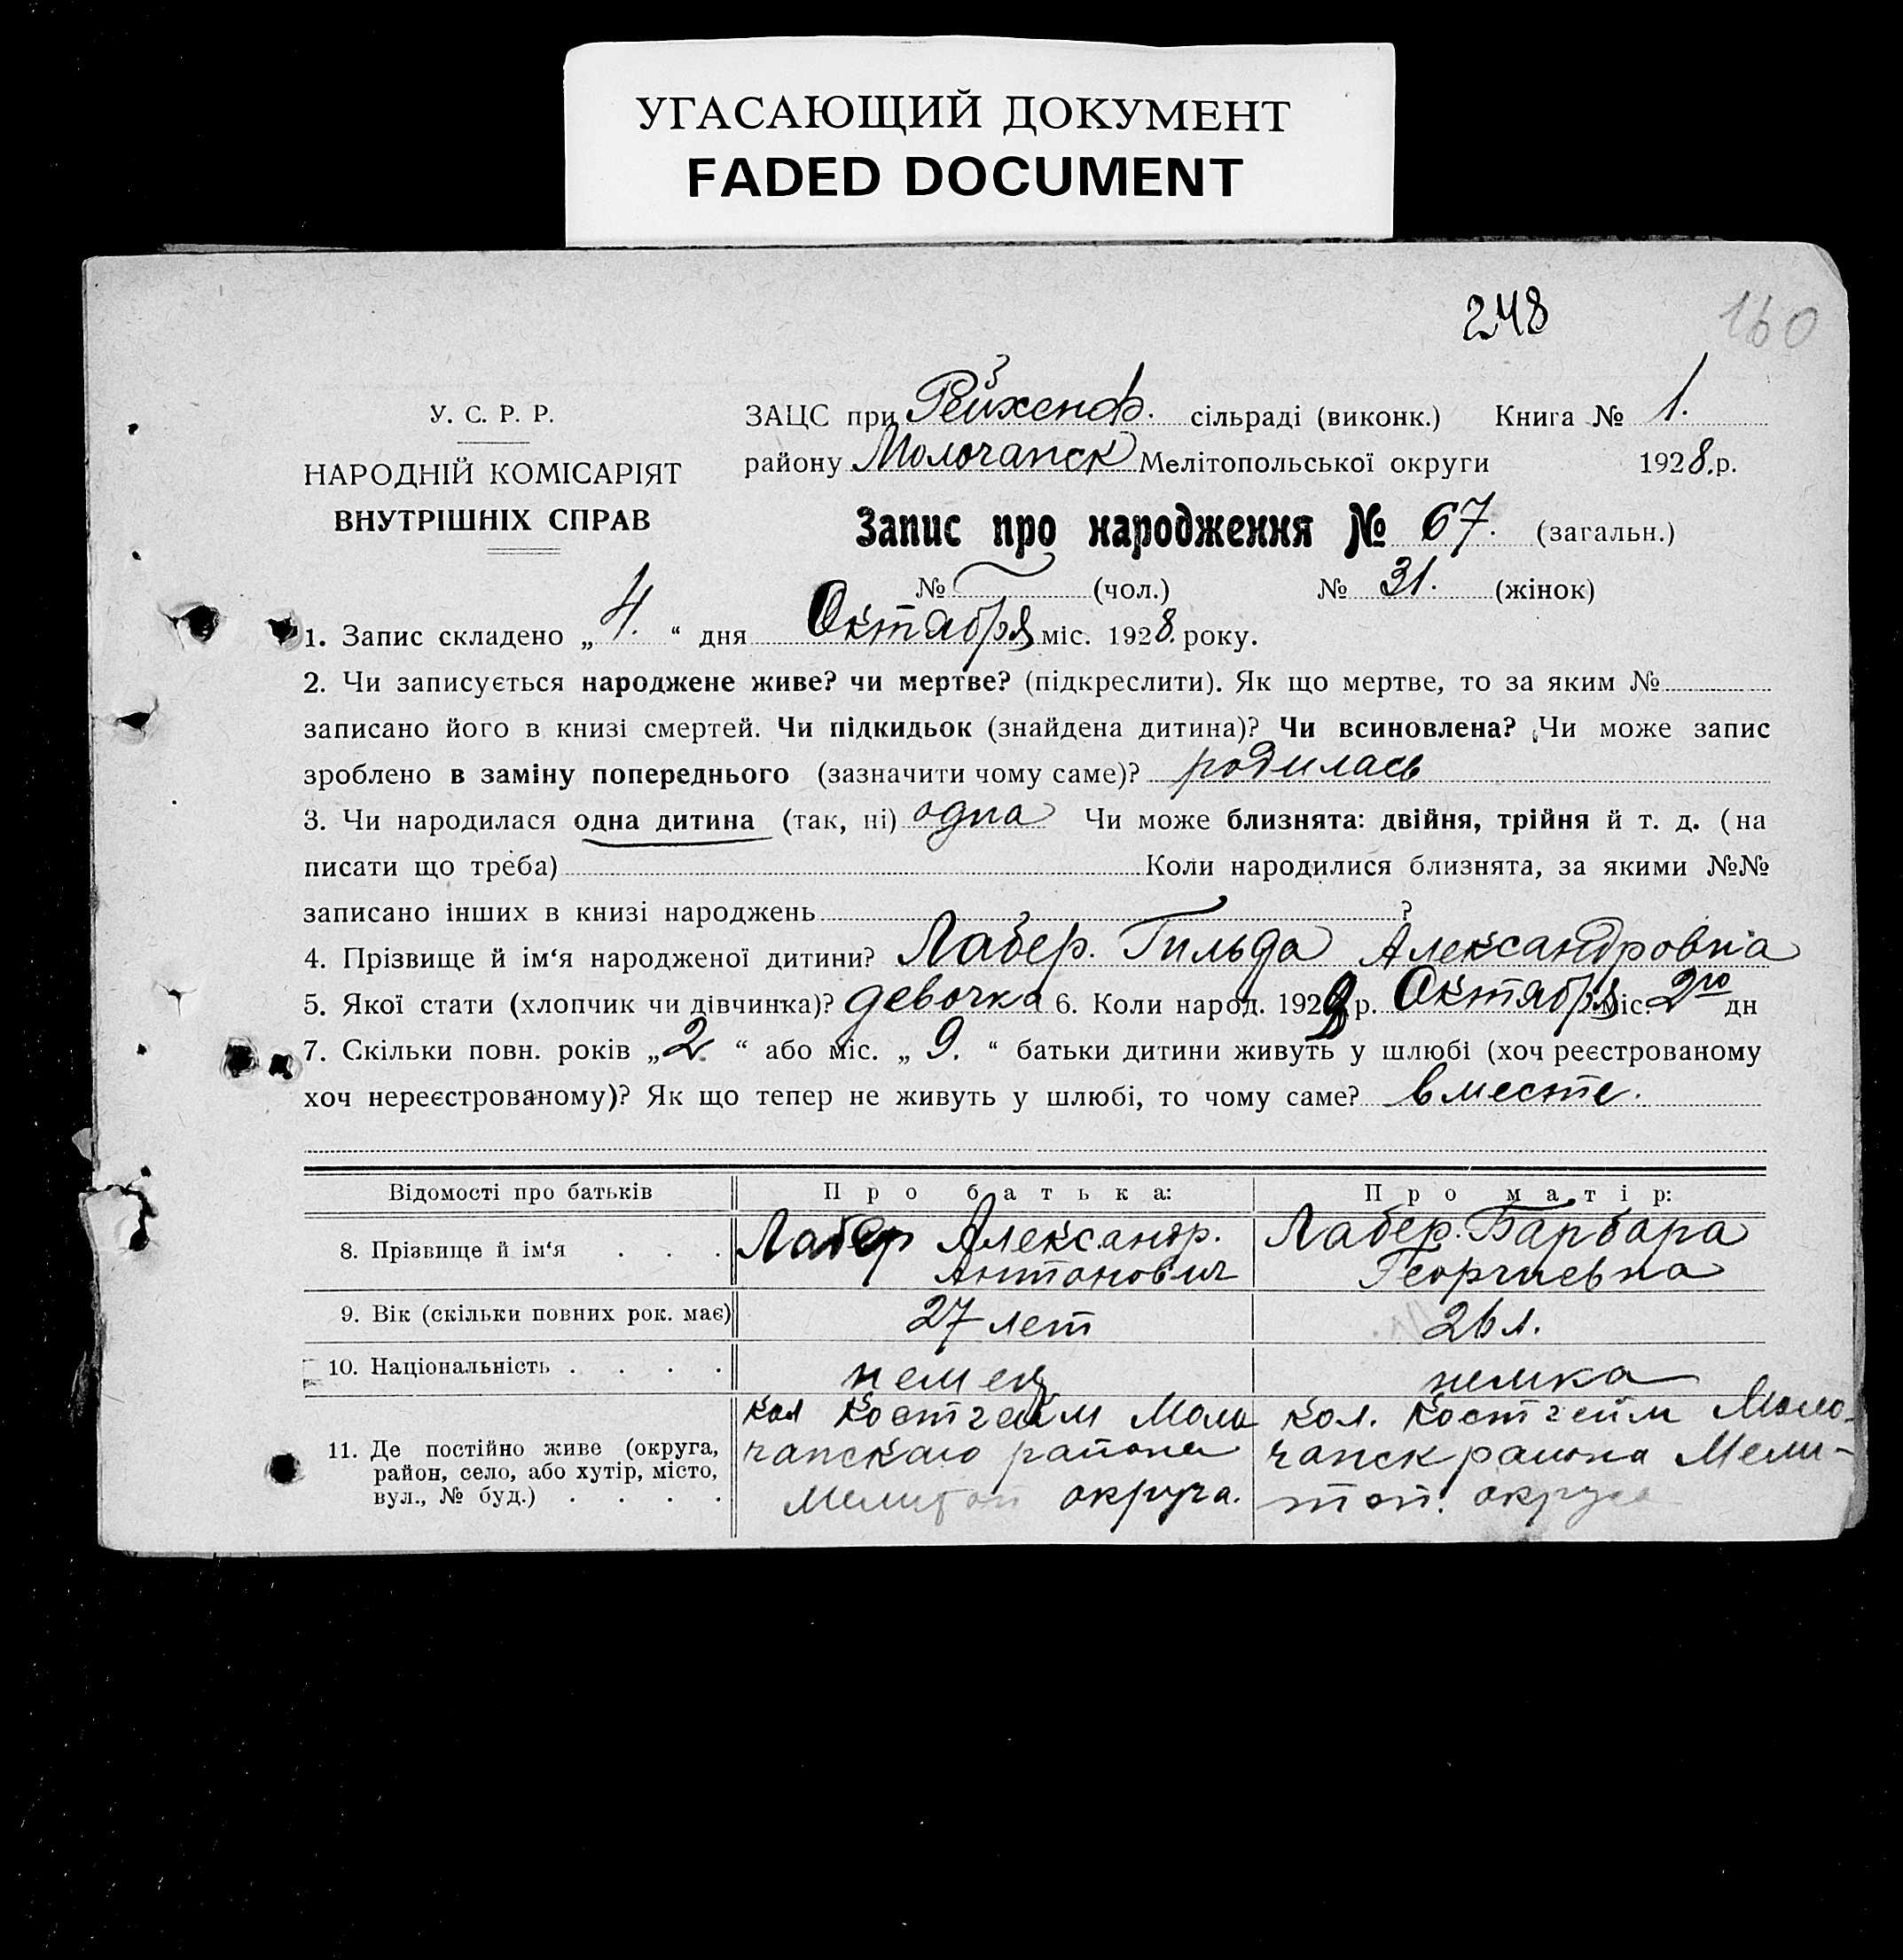 УГАСАЮЩИЙ ДОКУМЕНТ
FADED DOCUMENT
248
160
У. С. Р. Р.
НАРОДНІЙ КОМІСАРІЯТ
ВНУТРІШНІХ СПРАВ
ЗАЦС при Рейхенф. сільраді (виконк.) Книга № 1.
району Молочанск Мелітопольської округи 1928.р.
Запис про народження № 67. (загальн.)
№ (чол.) № 31. (жінок)
1. Запис складено „4.“ дня Октября міс. 1928. року.
2. Чи записується народжене живе? чи мертве? (підкреслити). Як що мертве, то за яким №
записано його в книзі смертей. Чи підкидьок (знайдена дитина)? Чи всиновлена? Чи може запис
зроблено в заміну попереднього (зазначити чому саме)? родилась
3. Чи народилася одна дитина (так, ні) одна Чи може близнята: двійня, трійня й т. д. (на
писати що треба) Коли народилися близнята, за якими №№
записано інших в книзі народжень ?
4. Прізвище й ім‘я народженої дитини? Лабер. Гильда Александровна
5. Якої стати (хлопчик чи дівчинка)? девочка 6. Коли народ. 1928 р. Октября міс. 2го дн
7. Скільки повн. років „2.“ або міс. „9.“ батьки дитини живуть у шлюбі (хоч реєстрованому
хоч нереєстрованому)? Як що тепер не живуть у шлюбі, то чому саме? вместе.
Відомості про батьків Про батька: Про матір:
8. Прізвище й ім‘я . . . Лабер Александр. Лабер. Барбара
Антонович Георгиевна
9. Вік (скільки повних рок. має) 27 лет 26 л.
10. Національність . . . . немец немка
кол Костгейм Моло кол. Костгейм Моло-
11. Де постійно живе (округа, чанскаго района чанск района Мели-
район, село, або хутір, місто,
вул., № буд.) . . . . Мелитоп округа. топ. округа